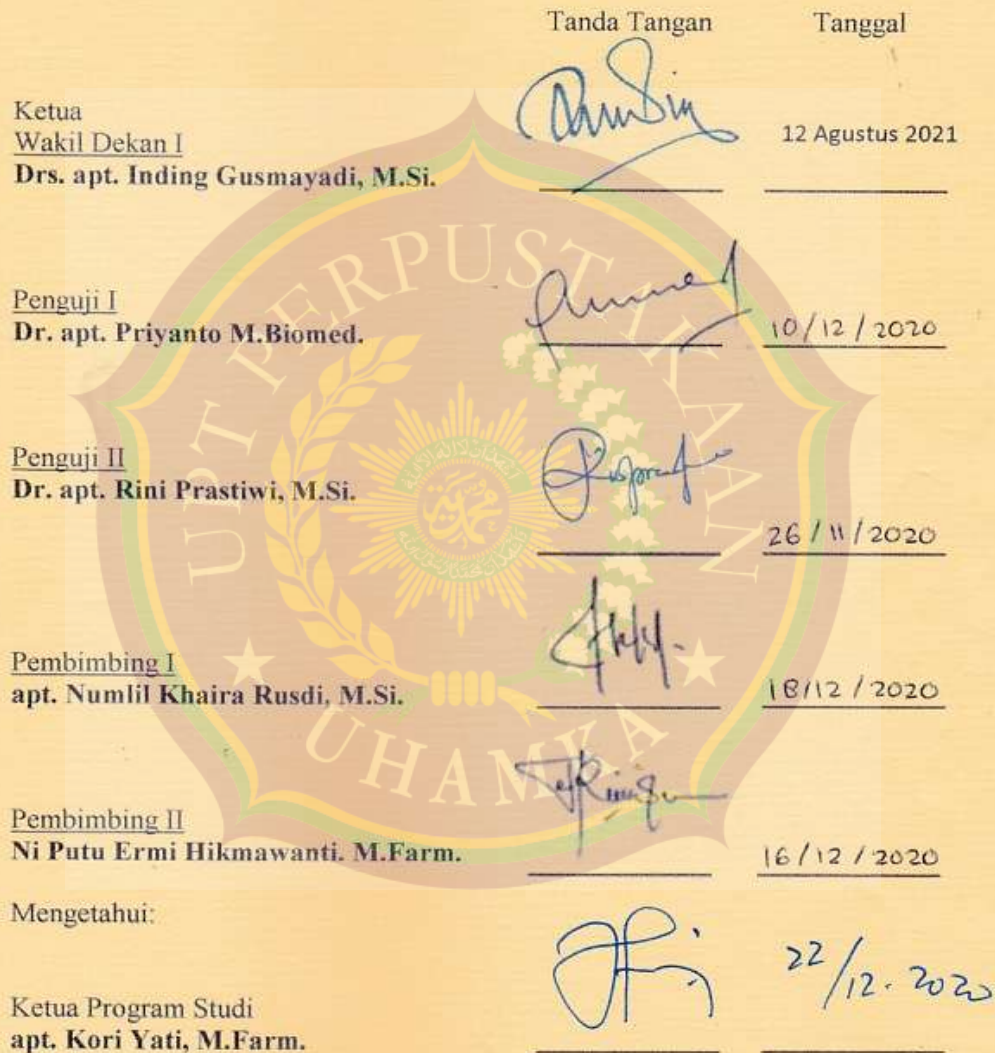 Tanda Tangan Tanggal
Ketua
Wakil Dekan I
Drs. apt. Inding Gusmayadi, M.Si.
12 Agustus 2021
Penguji I
Dr. apt. Priyanto M.Biomed.
10/12/2020
Penguji II
Dr. apt. Rini Prastiwi, M.Si.
26/11/2020
Pembimbing I
apt. Numlil Khaira Rusdi, M.Si.
18/12/2020
Pembimbing II
Ni Putu Ermi Hikmawanti. M.Farm.
16/12/2020
Mengetahui:
Ketua Program Studi
apt. Kori Yati, M.Farm.
22/12. 2020
UPT PERPUSTAKAAN
UHAMKA